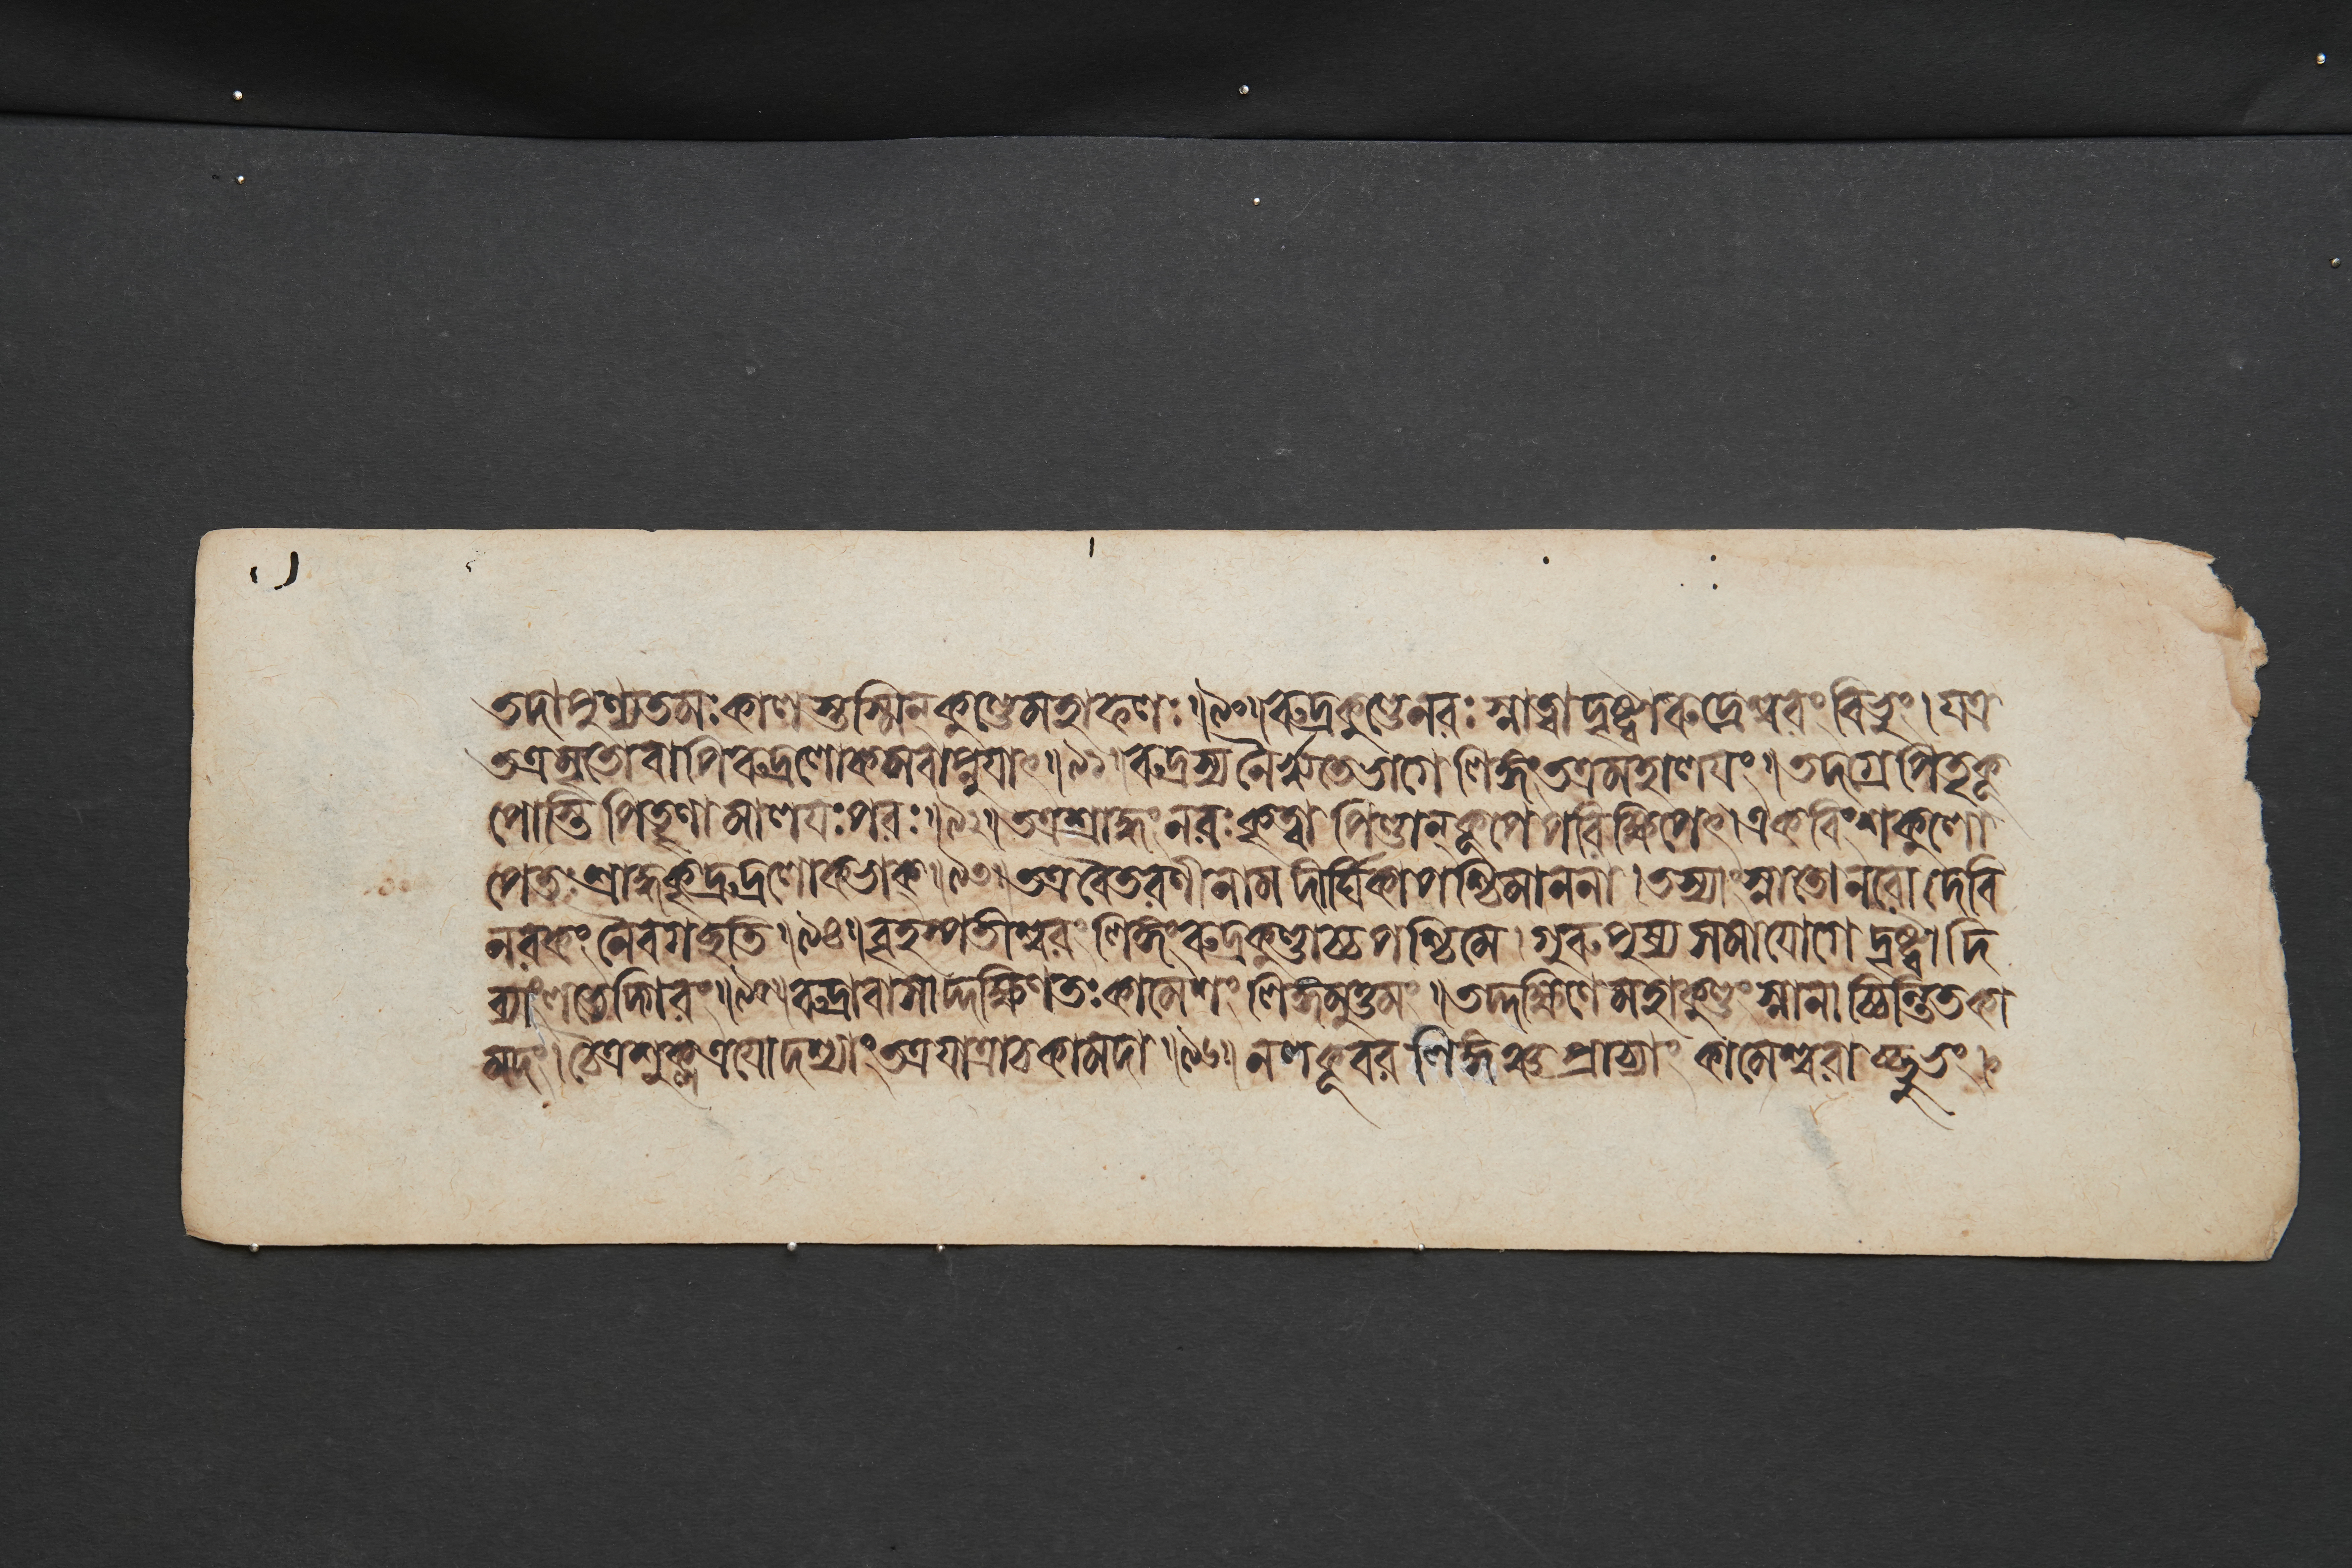 তদাপুণ্যতমঃকালস্তস্মিন্কুণ্ডেমহাফলঃ॥৯০॥রুদ্রকুণ্ডেনরঃস্নাত্বাদৃষ্ট্বারুদ্রেশ্বরংবিভুং।যত্র
তত্রমৃতোবাপিরুদ্রলোকমবাপ্নুযাৎ॥৯১॥রুদ্রস্যনৈরৃতেভাগেলিঙ্গংতত্রমহালযং॥তদগ্রেপিতৃকূ
পোস্তিপিতৄণামালযঃপরঃ॥৯২॥তত্রশ্রাদ্ধংনরঃকৃত্বাপিণ্ডান্কূপেপরিক্ষিপেৎ।একবিংশকুলো
পেতঃশ্রাদ্ধকৃদ্রুদ্রলোকভাক্॥৯৩॥তত্রবৈতরণীনামদীর্ঘিকাপশ্চিমাননা।তস্যাংস্নাতোনরোদেবি
নরকংনৈবগচ্ছতি॥৯৪॥বৃহস্পতীশ্বরংলিঙ্গংরুদ্রকুণ্ডাচ্চপশ্চিমে।গুরুপুষ্যসমাযোগেদৃষ্ট্বাদি
ব্যাংলভেদ্গিরং॥৯৫॥রুদ্রাবাসাদ্দক্ষিণতঃকামেশংলিঙ্গমুত্তমং॥তদ্দক্ষিণেমহাকুণ্ডংস্নানাচ্চিন্তিতকা
মদং।চৈত্রশুক্লত্রযোদশ্যাংতত্রযাত্রাচকামদা॥৯৬॥নলকূবরলিঙ্গঞ্চপ্রাচ্যাংকামেশ্বরাচ্ছুভং।